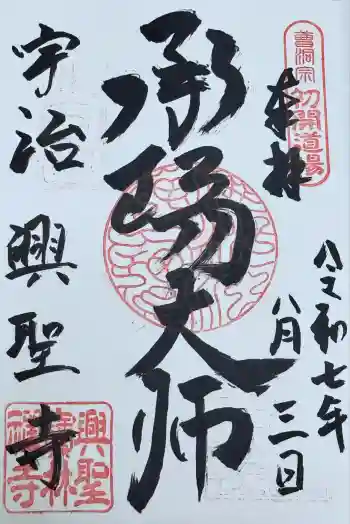 奉拝
曹洞宗
初開道場
令和七年
八月三日
承陽大師
宇治
興聖寺